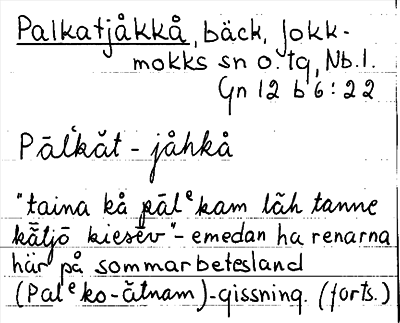 Palkatjåkkå, bäck, Jokk-
mokks sn o. tg, Nb. l.
Gn 12 b 6:22
Pālᵋkăt - jåhkå
"taina kå pālᵉkam lăh tanne
kā̆ljō kiesēv" - emedan ha renarna
här på sommarbetesland
(Palᵉko-ătnam)-gissning. (forts.)